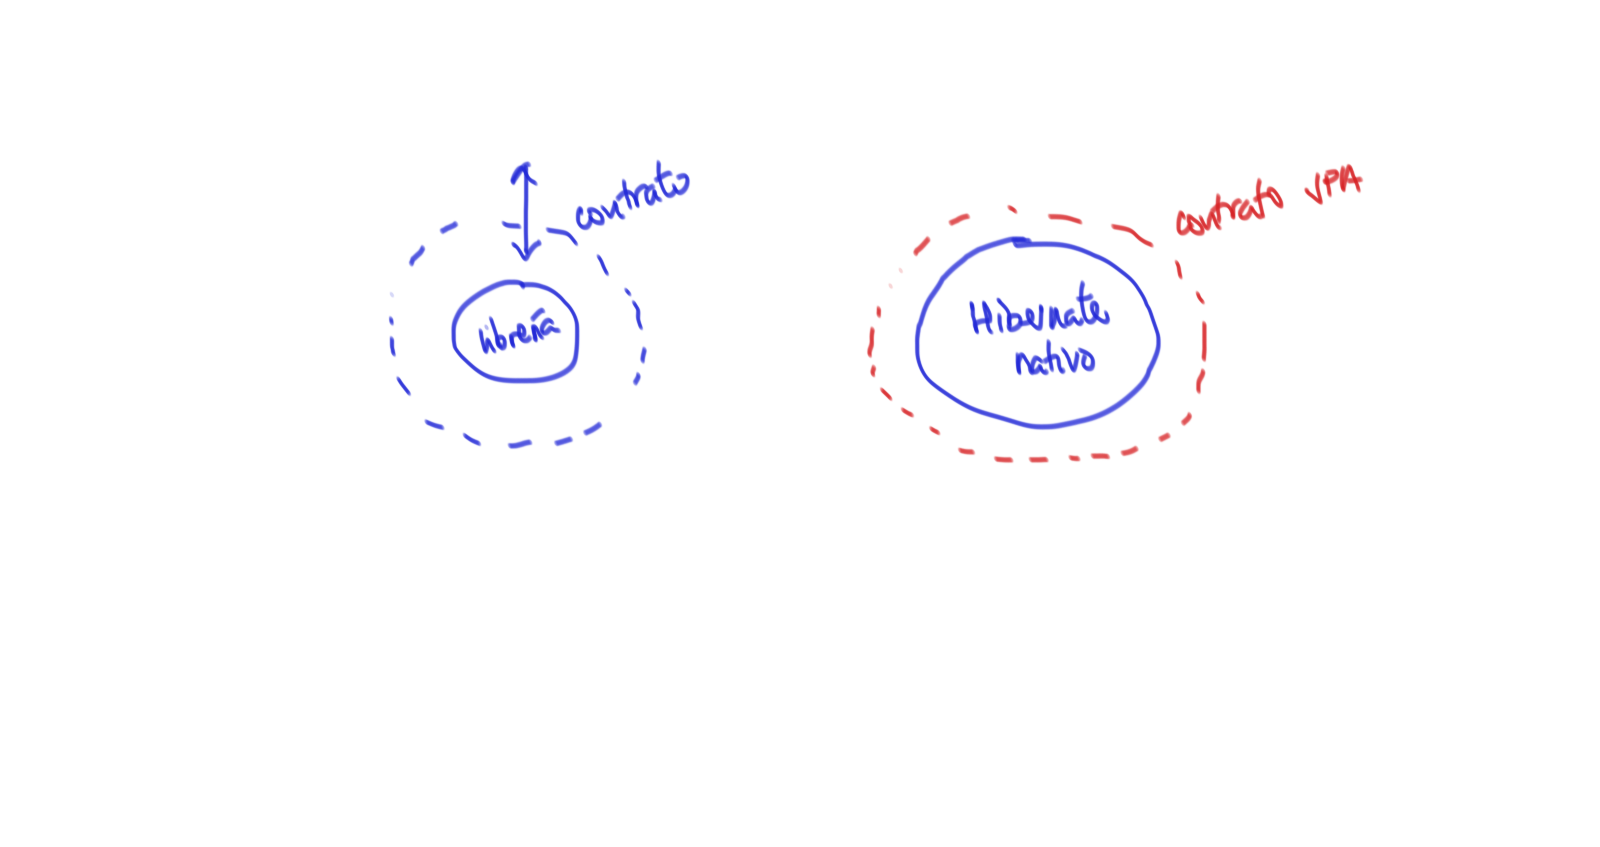 contrato
librería
contrato JPA
Hibernate
nativo